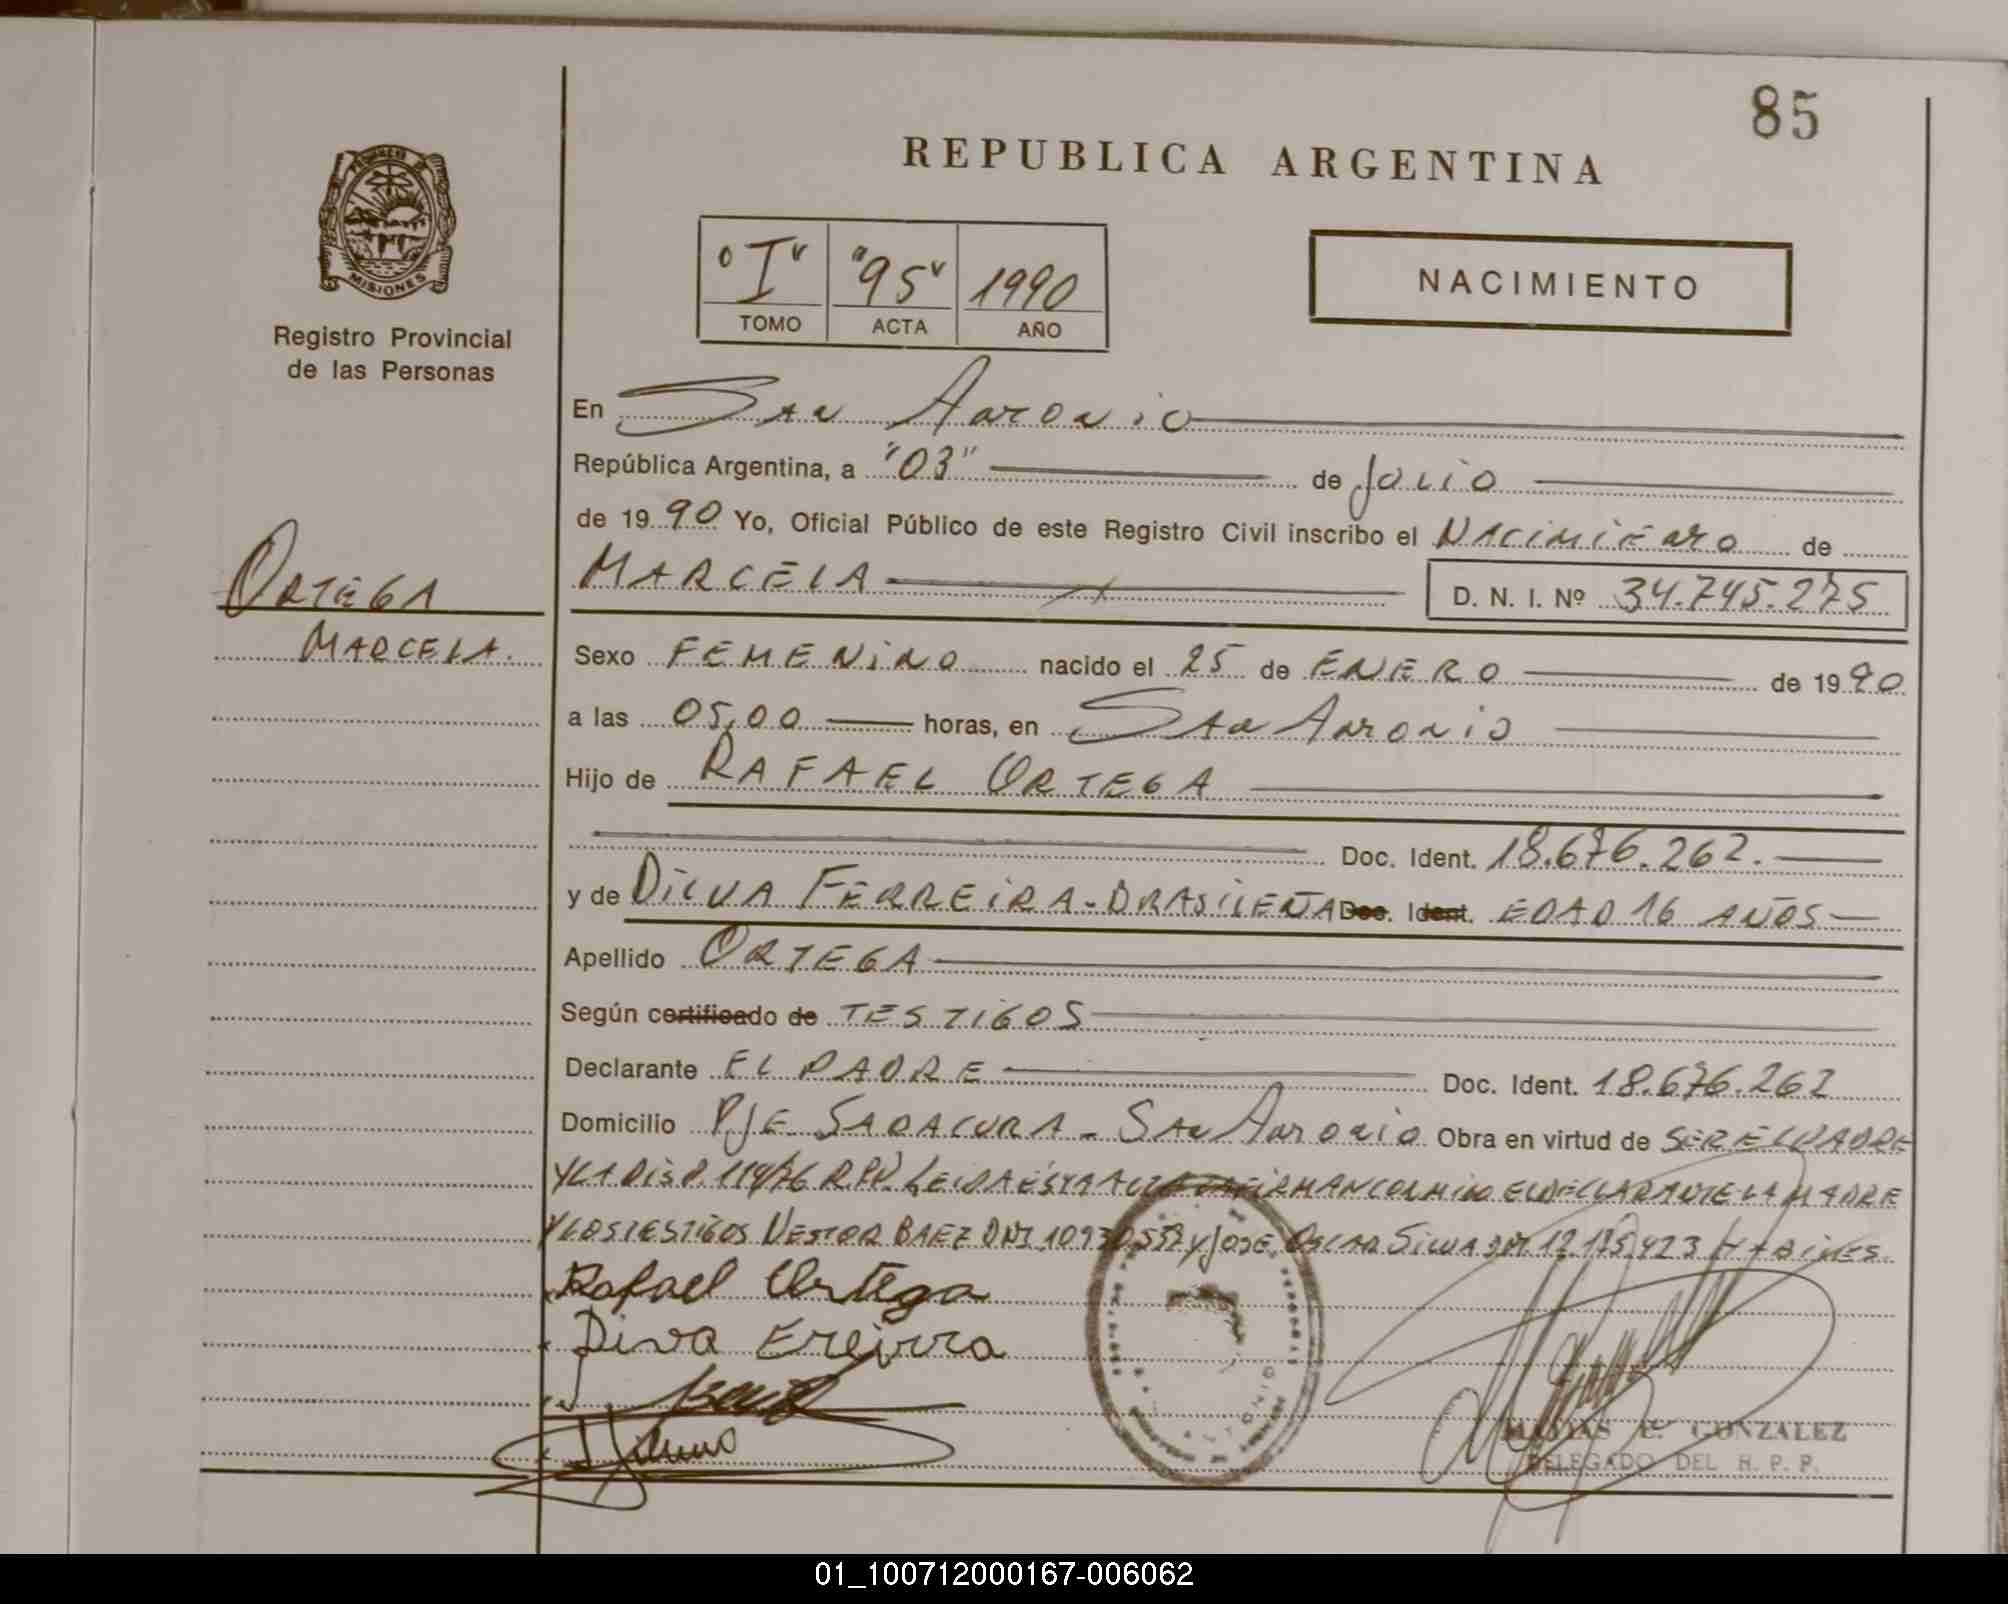 85
REPUBLICA ARGENTINA
PROVINCIA DE
MISIONES
Registro Provincial
de las Personas
"I" "95" 1990
TOMO ACTA AÑO
NACIMIENTO
En San Antonio
República Argentina, a "03" de Julio
de 1990 Yo, Oficial Público de este Registro Civil inscribo el Nacimiento de
MARCELA D. N. I. Nº 34.745.275
ORTEGA
MARCELA.
Sexo FEMENINO nacido el 25 de ENERO de 1990
a las 05,00 horas, en San Antonio
Hijo de RAFAEL ORTEGA
Doc. Ident. 18.676.262.
y de DILVA FERREIRA - BRASILEÑA Doc. Ident. EDAD 16 AÑOS
Apellido ORTEGA
Según certificado de TESTIGOS
Declarante EL PADRE Doc. Ident. 18.676.262
Domicilio PJE SARACURA - San Antonio Obra en virtud de SER EL PADRE
Y LA DISP. 114/76 R.P.P. LEIDA ESTA ACTA LA FIRMAN CONMIGO EL DECLARANTE LA MADRE
Y LOS TESTIGOS NESTOR BAEZ DNI Y JOSE OSCAR SILVA DNI 12.175.423 HABILES.
Rafael Ortega
Diva Ereirra
MATIAS E. GONZALEZ
DELEGADO DEL R. P. P.
01_100712000167-006062